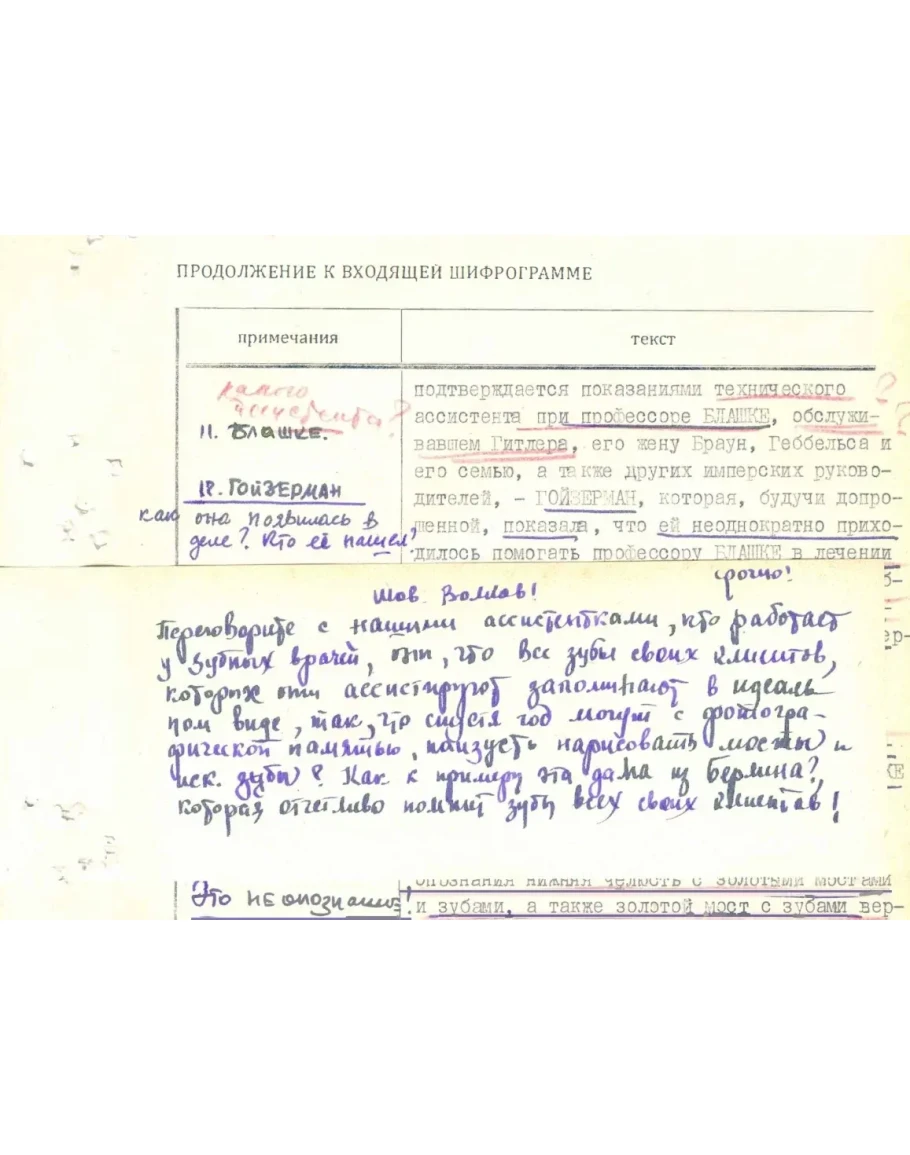 ПРОДОЛЖЕНИЕ К ВХОДЯЩЕЙ ШИФРОГРАММЕ
примечания
текст
какого
ассистента?
11. БЛАШКЕ.
12. ГОЙЗЕРМАН
как она появилась в
деле? Кто её нашел?
подтверждается показаниями технического
ассистента при профессоре БЛАШКЕ, обслужи-
вавшем Гитлера, его жену Браун, Геббельса и
его семью, а также других имперских руково-
дителей, – ГОЙЗЕРМАН, которая, будучи допро-
шенной, показала, что ей неоднократно прихо-
дилось помогать профессору БЛАШКЕ в лечении
срочно!
тов. Волков!
Переговорите с нашими ассистентками, кто работает
у зубных врачей, они, что все зубы своих клиентов,
которых они ассистируют запоминают в идеаль
ном виде, так, что спустя год могут с фотогра-
фической памятью, наизусть нарисовать мосты и
иск. зубы? Как к примеру эта дама из Берлина?,
которая отчетливо помнит зубы всех своих клиентов!
Это не опознание!
опознания нижняя челюсть с золотыми мостами
и зубами, а также золотой мост с зубами вер-